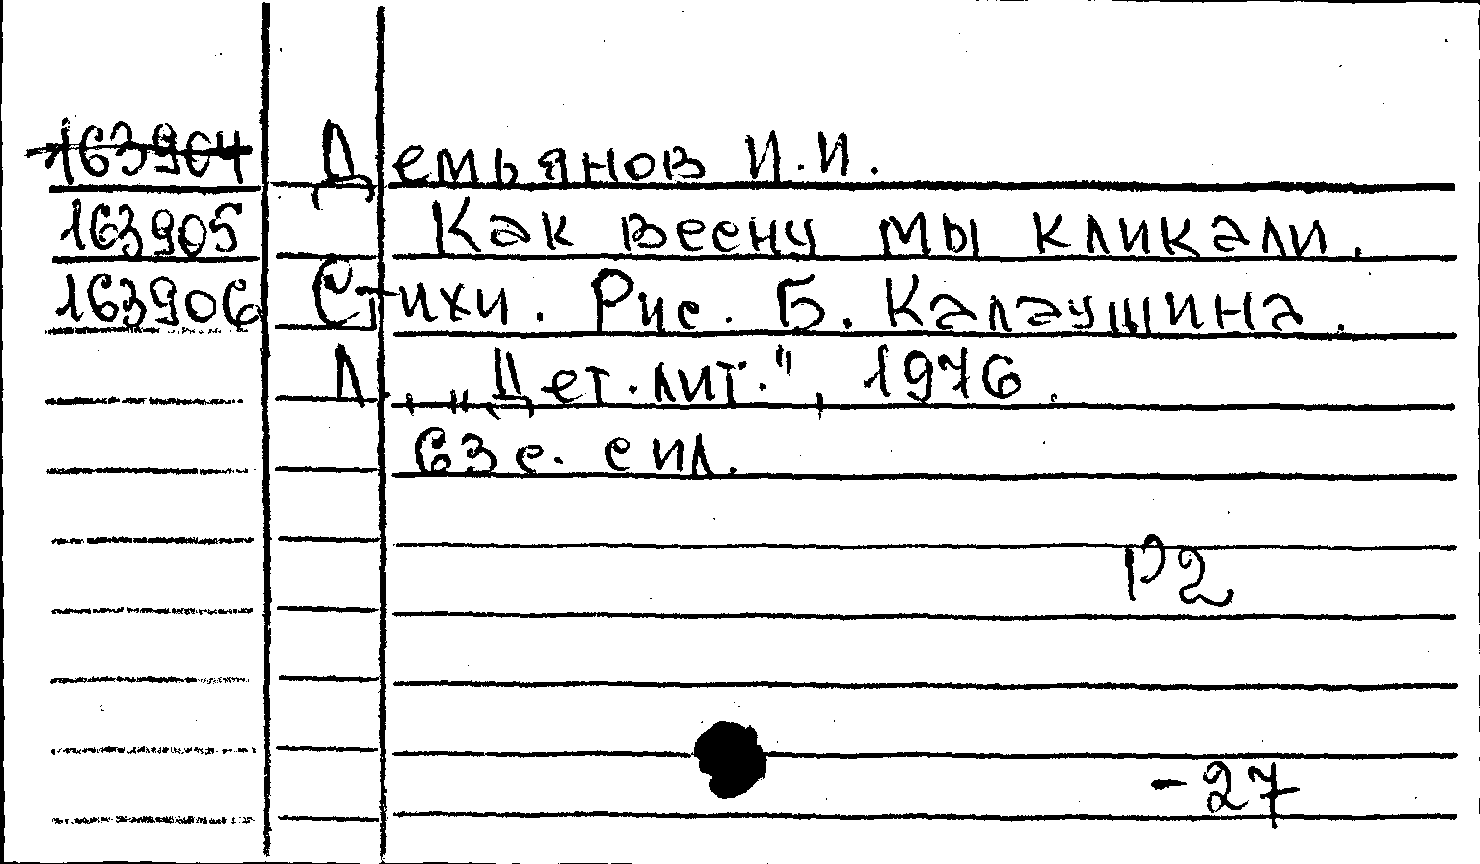 163904 Демьянов И.И.
163905 Как весну мы кликали.
163906 Стихи. Рис. Б. Калаушина.
Л., „Дет. лит.", 1976.
63 с. с ил.
Р2
-27